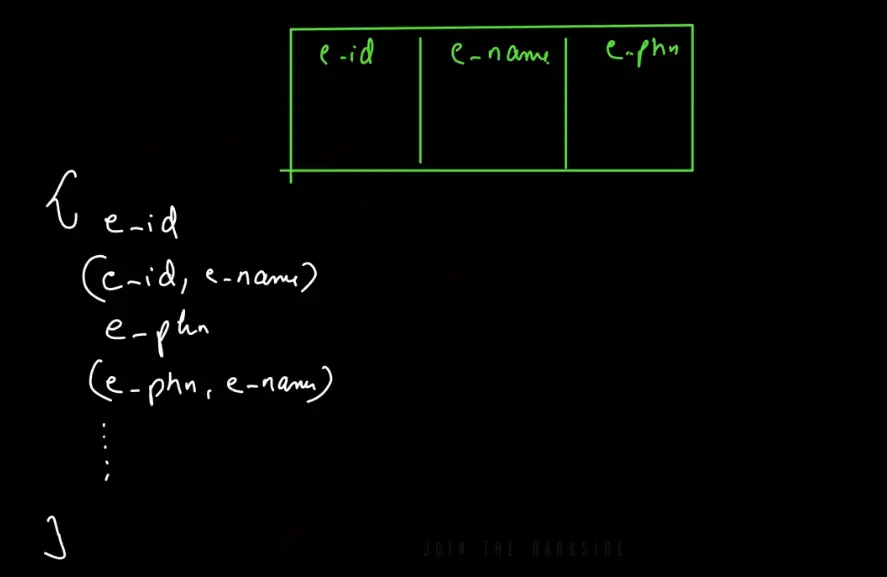 e-id e-name e-phn
{
e-id
(e-id, e-name)
e-phn
(e-phn, e-name)
}
JOIN THE DARKSIDE